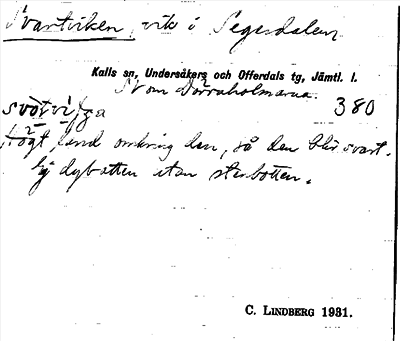 Svartviken, vik i Segerdalen
Kalls sn, Undersåkers och Offerdals tg, Jämtl. l.
SV om Dörrsholmarna. 380
svòtvi,ka
högt land omkring den, så den blir svart.
Ej dybotten utan stenbotten.
C. LINDBERG 1931.